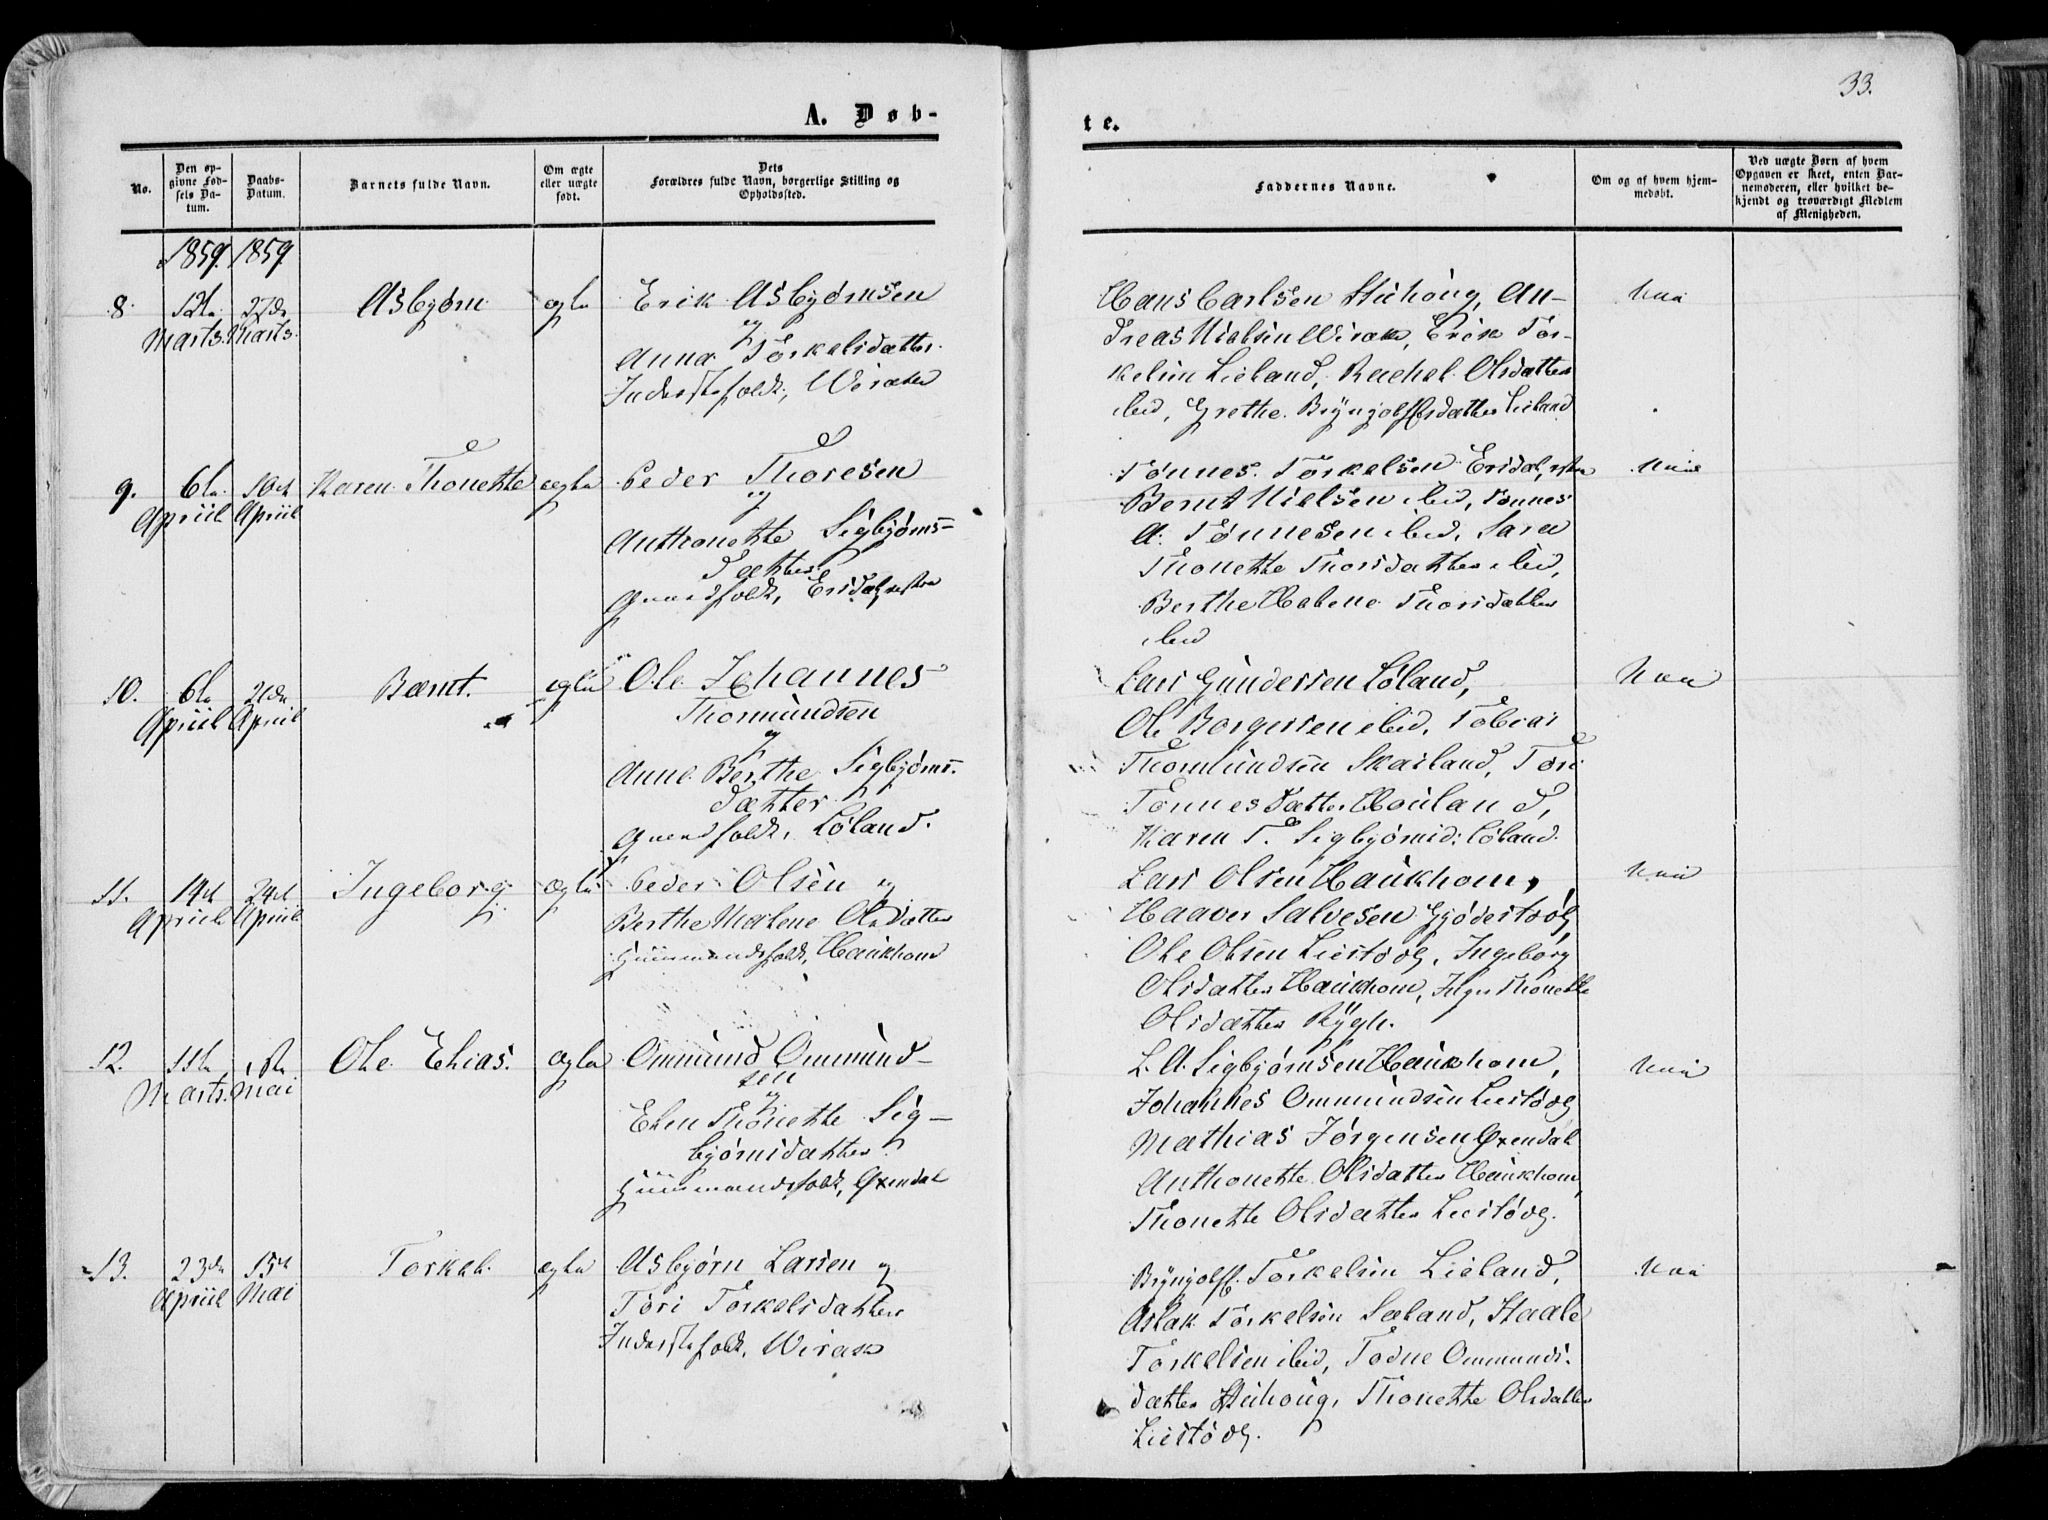 33.
A. Døb-
te.
No.
Den op-
givne Fød-
sels Da-
tum.
Daabs-
Datum.
Barnets fulde Navn.
Om ægte
eller uægte
født.
Dets
Forældres fulde Navn, borgerlige Stilling og
Opholdssted.
Faddernes Navne.
Om og af hvem hjem-
medøbt.
Ved uægte Børn af hvem
Opgaven er skeet, enten Bar-
nemoderen, eller hvilket be-
kjendt og troværdigt Medlem
af Menigheden.
1859. 1859.
8. 12te 27de Asbjørn ægte Erik Asbjørnsen
Marts. Marts. og
Anna Torkelsdatter.
Inderstefolk, Wirak
Hans Carlsen Stuhoug, An-
dreas Nielsen Wirak, Erik Tor-
kelsen Lieland, Rachel Olsdatter
ibid, Grethe Bryngjolfsdatter Lieland
Nei
9. 6te 10de Karen Thonette ægte Peder Thoresen
Apriil Apriil og
Anthonette Sigbjørns-
datter
Gaardfolk, Eisdal, vestre
Tønnes Torkelsen Eisdal, vestre
Bernt Nielsen ibid, Tønnes
A. Tønnesen ibid, Sara
Thonette Thorsdatter ibid,
Berthe Helene Thorsdatter
ibid
Nei
10. 6te 21de Bernt. ægte Ole Johannes
Apriil Apriil Thormundsen
og
Anne Berthe Sigbjørns-
datter
Gaardfolk, Løland.
Lars Gundersen Løland,
Ole Borgersen ibid, Tobias
Thormundsen Skailand, Tori
Tønnesdatter Houland,
Karen T. Sigbjørnsd: Løland.
Nei
11. 14de 24de Ingeborg ægte Peder Olsen og
Apriil Apriil Berthe Malene Olsdatter
Huusmandsfolk, Haukhom
Lars Olsen Haukhom,
Haaver Salvesen Gjødestøl,
Ole Olsen Liestøl, Ingeborg
Olsdatter Haukhom, Inger Thonette
Olsdatter Rygh.
Nei
12. 11te 1ste Ole Elias. ægte Ommund Ommund-
Marts. Mai sen
og
Elen Thonette Sig-
bjørnsdatter
Huusmandsfolk, Øxendal
L. A. Sigbjørnsen Haukhom,
Johannes Ommundsen Liestøl
Mathias Jørgensen Øxendal
Anthonette Olsdatter Haukhom,
Thonette Olsdatter Liestøl.
Nei
13. 23de 15de Torkel. ægte Asbjørn Larsen og
Apriil Mai Tori Torkelsdatter
Inderstefolk, Wirak
Bryngjolf Torkelsen Lieland,
Aslak Torkelsen Sæland, Staale
Torkelsen ibid, Todne Ommunds-
datter Stuhoug, Thonette Olsdatter
Liestøl.
Nei